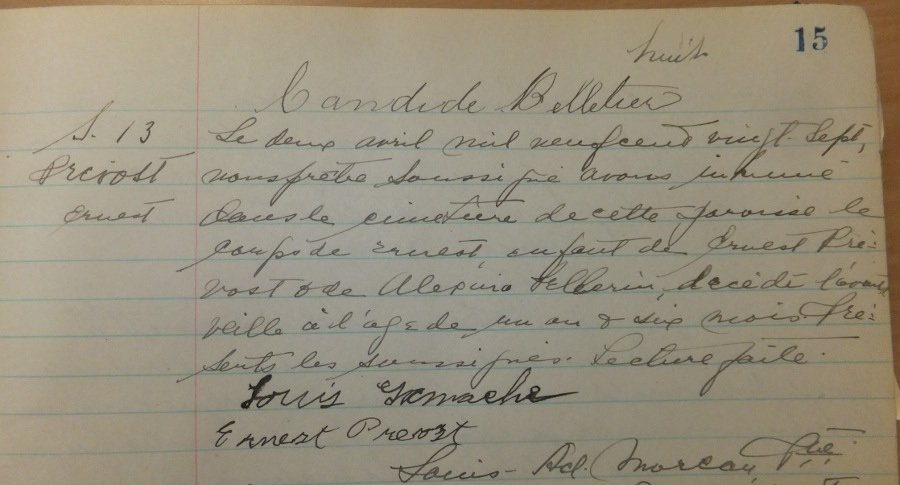 15
huit
Candide Belletier
S. 13
Le deux avril mil neuf cent vingt-sept,
Prévost
nous prêtre soussigné avons inhumé
Ernest
dans le cimetière de cette paroisse le
corps de Ernest, enfant de Ernest Pré-
vost & de Alexina Pellerin, décédé l'avant
veille à l'age de un an & six mois. Pré-
sents les soussignés. Lecture faite.
Louis Gamache
Ernest Prevost
Louis-Ad. Moreau, Ptre